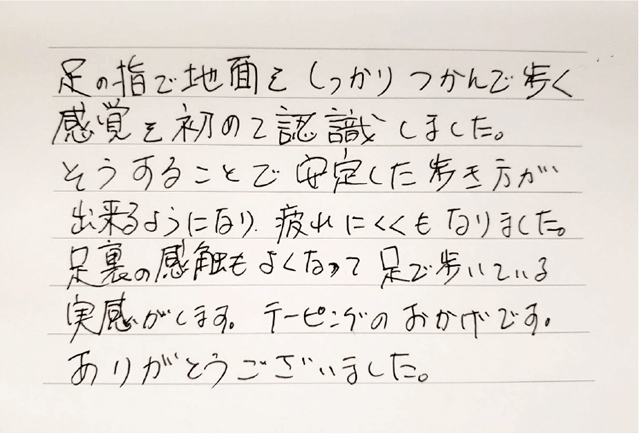 足の指で地面をしっかりつかんで歩く
感覚を初めて認識しました。
そうすることで安定した歩き方が
出来るようになり、疲れにくくもなりました。
足裏の感触もよくなって足で歩いている
実感がします。テーピングのおかげです。
ありがとうございました。